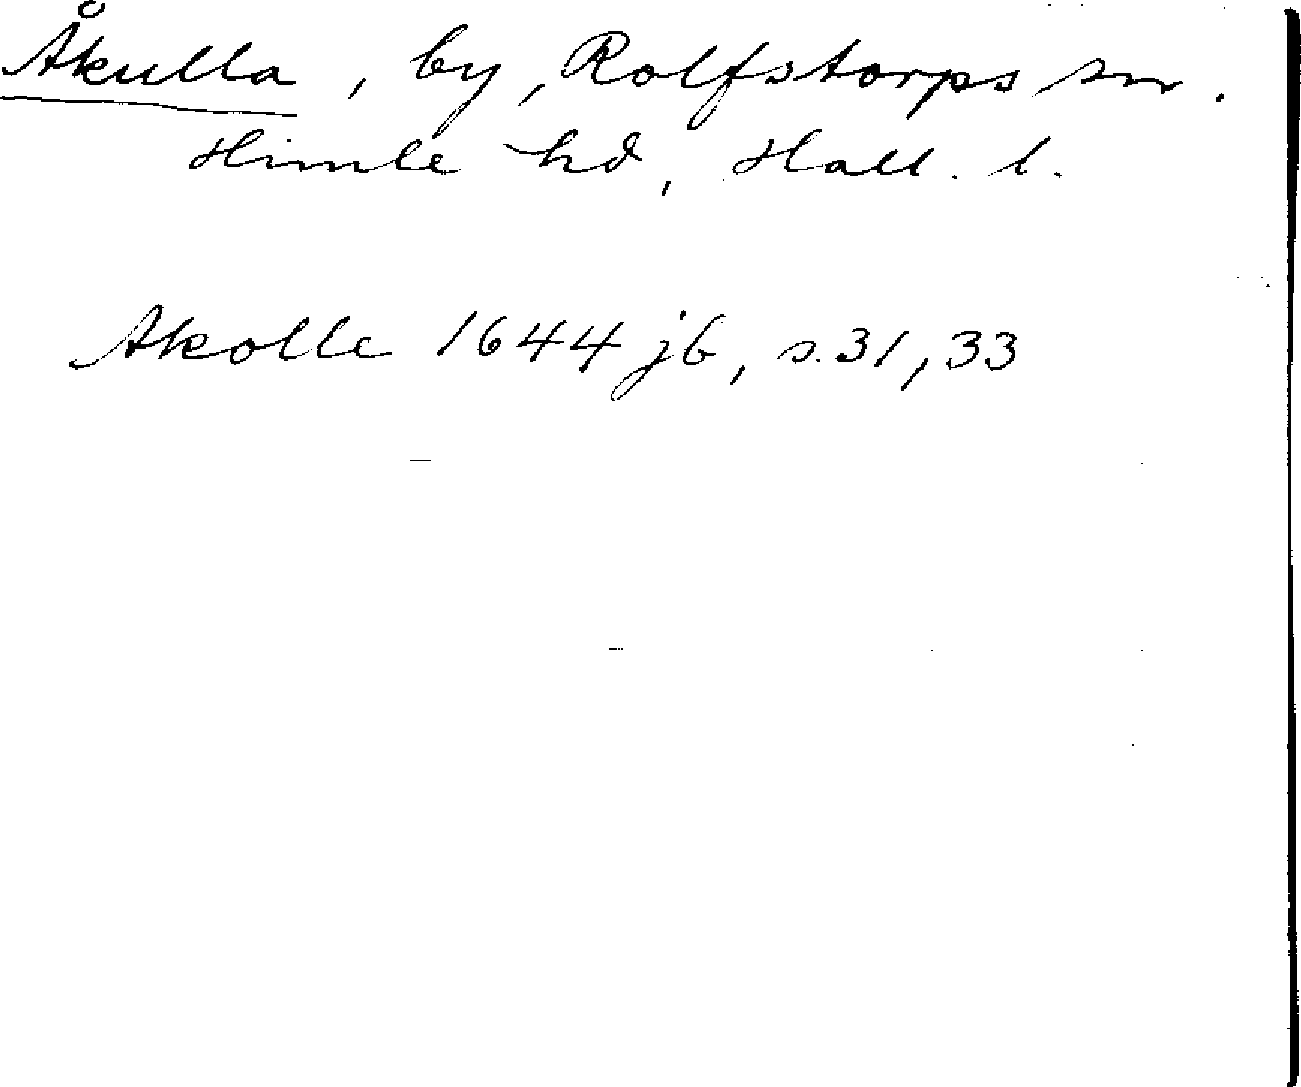 Åkulla, by, Rolfstorps sn.
Himle hd, Hall. l.
Akolle 1644 jb, s. 31, 33